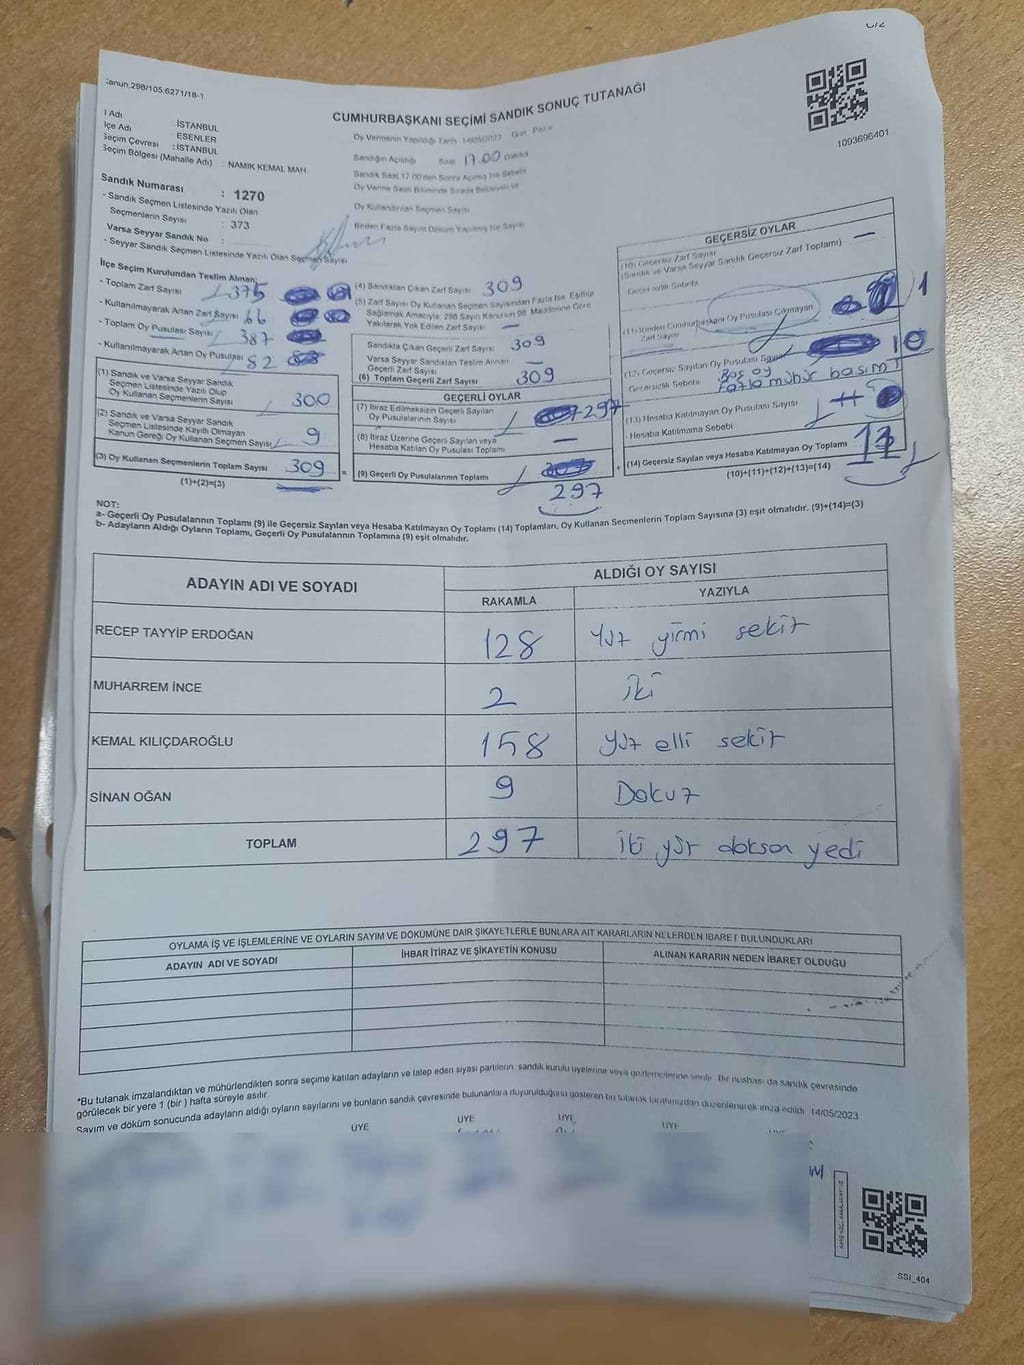 Kanun:298/105,6271/18-1
CUMHURBAŞKANI SEÇİMİ SANDIK SONUÇ TUTANAĞI
1093696401
İl Adı : İSTANBUL
İlçe Adı : ESENLER
Seçim Çevresi : İSTANBUL
Seçim Bölgesi (Mahalle Adı) : NAMIK KEMAL MAH.
Sandık Numarası : 1270
- Sandık Seçmen Listesinde Yazılı Olan
Seçmenlerin Sayısı : 373
Varsa Seyyar Sandık No :
- Seyyar Sandık Seçmen Listesinde Yazılı Olan Seçmen Sayısı
Oy Vermenin Yapıldığı Tarih 14/05/2023 Gün Pazar
Sandığın Açıldığı Saat 17.00 Dakika
Sandık Saat 17.00'den Sonra Açılmış İse Sebebi
Oy Kullandırılan Seçmen Sayısı
Birden Fazla Sayım Döküm Yapılmış İse Sayısı
İlçe Seçim Kurulundan Teslim Alınan;
- Toplam Zarf Sayısı 375
- Kullanılmayarak Artan Zarf Sayısı 66
- Toplam Oy Pusulası Sayısı 387
- Kullanılmayarak Artan Oy Pusulası 82
(1) Sandık ve Varsa Seyyar Sandık
Seçmen Listesinde Yazılı Olup
Oy Kullanan Seçmenlerin Sayısı 300
(2) Sandık ve Varsa Seyyar Sandık
Seçmen Listesinde Kayıtlı Olmayan
Kanun Gereği Oy Kullanan Seçmen Sayısı 9
(3) Oy Kullanan Seçmenlerin Toplam Sayısı 309
(1)+(2)=(3)
(4) Sandıktan Çıkan Zarf Sayısı 309
(5) Zarf Sayısı Oy Kullanan Seçmen Sayısından Fazla İse, Eşitliği
Sağlamak Amacıyla, 298 Sayılı Kanunun 98. Maddesine Göre
Yakılarak Yok Edilen Zarf Sayısı —
Sandıkta Çıkan Geçerli Zarf Sayısı 309
Varsa Seyyar Sandıktan Teslim Alınan
Geçerli Zarf Sayısı —
(6) Toplam Geçerli Zarf Sayısı 309
GEÇERLİ OYLAR
(7) İtiraz Edilmeksizin Geçerli Sayılan
Oy Pusulalarının Sayısı 297
(8) İtiraz Üzerine Geçerli Sayılan veya
Hesaba Katılan Oy Pusulası Toplamı —
(9) Geçerli Oy Pusulalarının Toplamı
297
GEÇERSİZ OYLAR
(10) Geçersiz Zarf Sayısı —
(Sandık ve Varsa Seyyar Sandık Geçersiz Zarf Toplamı)
Geçersizlik Sebebi
(11) İçinden Cumhurbaşkanı Oy Pusulası Çıkmayan
Zarf Sayısı 1
(12) Geçersiz Sayılan Oy Pusulası Sayısı 10
Geçersizlik Sebebi Boş oy
Fazla mühür basımı
(13) Hesaba Katılmayan Oy Pusulası Sayısı
Hesaba Katılmama Sebebi
(14) Geçersiz Sayılan veya Hesaba Katılmayan Oy Toplamı
(10)+(11)+(12)+(13)=(14)
NOT:
a- Geçerli Oy Pusulalarının Toplamı (9) ile Geçersiz Sayılan veya Hesaba Katılmayan Oy Toplamı (14) Toplamları, Oy Kullanan Seçmenlerin Toplam Sayısına (3) eşit olmalıdır. (9)+(14)=(3)
b- Adayların Aldığı Oyların Toplamı, Geçerli Oy Pusulalarının Toplamına (9) eşit olmalıdır.
ADAYIN ADI VE SOYADI ALDIĞI OY SAYISI
RAKAMLA YAZIYLA
RECEP TAYYİP ERDOĞAN 128 Yüz yirmi sekiz
MUHARREM İNCE 2 iki
KEMAL KILIÇDAROĞLU 158 yüz elli sekiz
SİNAN OĞAN 9 Dokuz
TOPLAM 297 iki yüz doksan yedi
OYLAMA İŞ VE İŞLEMLERİNE VE OYLARIN SAYIM VE DÖKÜMÜNE DAİR ŞİKAYETLERLE BUNLARA AİT KARARLARIN NELERDEN İBARET BULUNDUKLARI
ADAYIN ADI VE SOYADI İHBAR İTİRAZ VE ŞİKAYETİN KONUSU ALINAN KARARIN NEDEN İBARET OLDUĞU
*Bu tutanak imzalandıktan ve mühürlendikten sonra seçime katılan adayların ve talep eden siyasi partilerin sandık kurulu üyelerine veya gözlemcilerine verilir. Bir nüshası da sandık çevresinde
görülecek bir yere 1 (bir) hafta süreyle asılır.
Sayım ve döküm sonucunda adayların aldığı oyların sayılarını ve bunların sandık çevresinde bulunanlara duyurulduğunu gösteren bu tutanak tarafımızdan düzenlenerek imza edildi. 14/05/2023
ÜYE ÜYE ÜYE
SSI_404